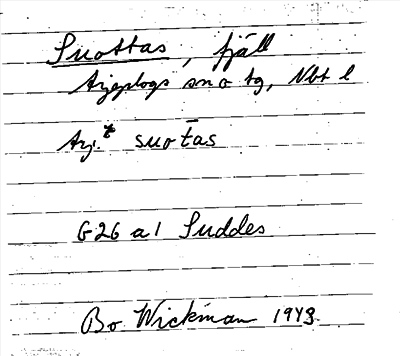 Suottas, fjäll
Arjeplogs sn o tg, Nbt l
Arj.t suo̅tas
G26 a1 Suddes
Bo Wickman 1943